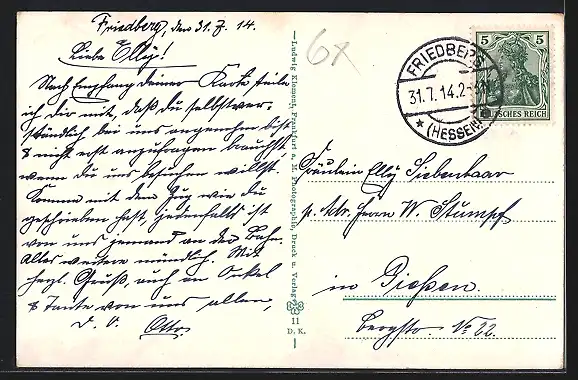 Friedberg, den 31.7.14.
Liebe Elly!
Nach Empfang deiner Karte teile
ich dir mit, daß du selbstver-
ständlich bei uns angenehm bist
& nicht erst anzufragen brauchst,
wenn du uns besuchen willst.
Komme mit dem Zug wie du
geschrieben hast, jedenfalls ist
von uns jemand an der Bahn.
Alles weitere mündlich. Mit
herzl. Gruß, auch an Onkel
& Tante von uns allen,
d. O. Otto
Ludwig Klement, Frankfurt a. M. Photographie, Druck u. Verlag
11
D. K.
6x
FRIEDBERG
31.7.14.2-
* (HESSEN)
5 5
DEUTSCHES REICH
Fräulein Elly Siebenhaar
p. Adr. Herrn W. Stumpf
in Gießen.
Bergstr. No 22.